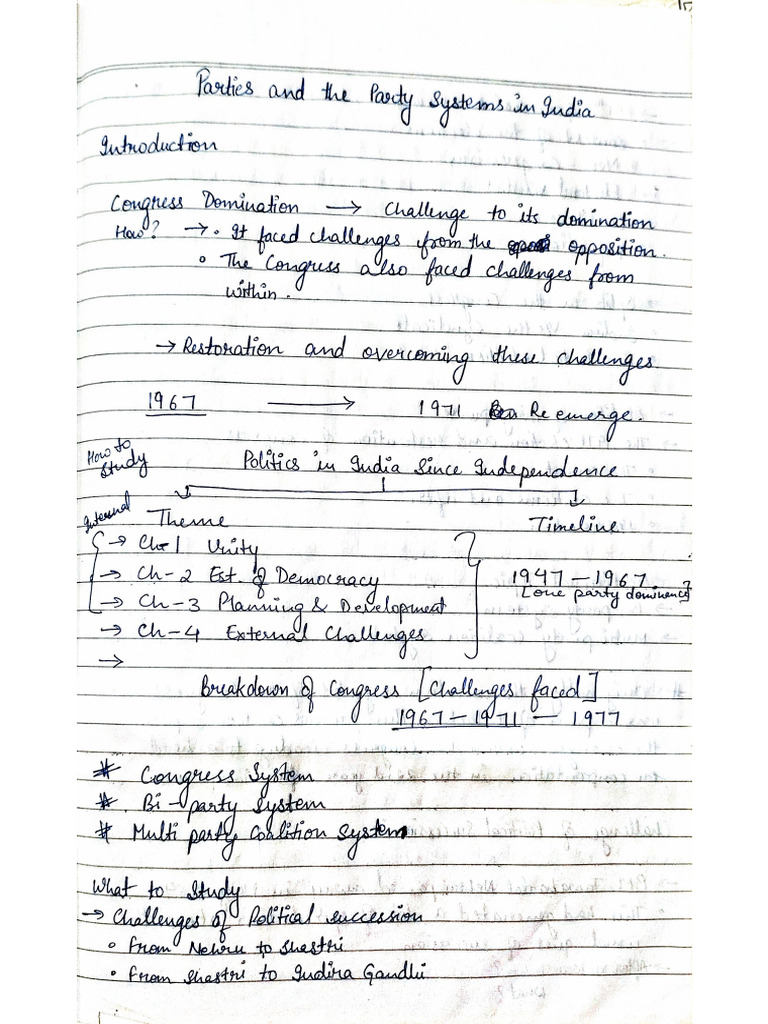 Parties and the Party Systems in India
Introduction
Congress Domination → Challenge to its domination
How? → • It faced challenges from the opposition.
• The Congress also faced challenges from
within.
→ Restoration and overcoming these challenges.
1967 → 1971 Re emerge.
How to
Study
Politics in India Since Independence
Internal
Theme
Timeline
→ Ch-1 Unity
→ Ch-2 Est. of Democracy
1947 – 1967
→ Ch-3 Planning & Development
[one party dominence]
→ Ch-4 External Challenges
→
Breakdown of Congress [Challenges faced]
1967 – 1971 – 1977
# Congress System
# Bi-party system
# Multi party Coalition System
What to Study
→ Challenges of Political succession
• From Nehru to Shastri
• From Shastri to Indira Gandhi